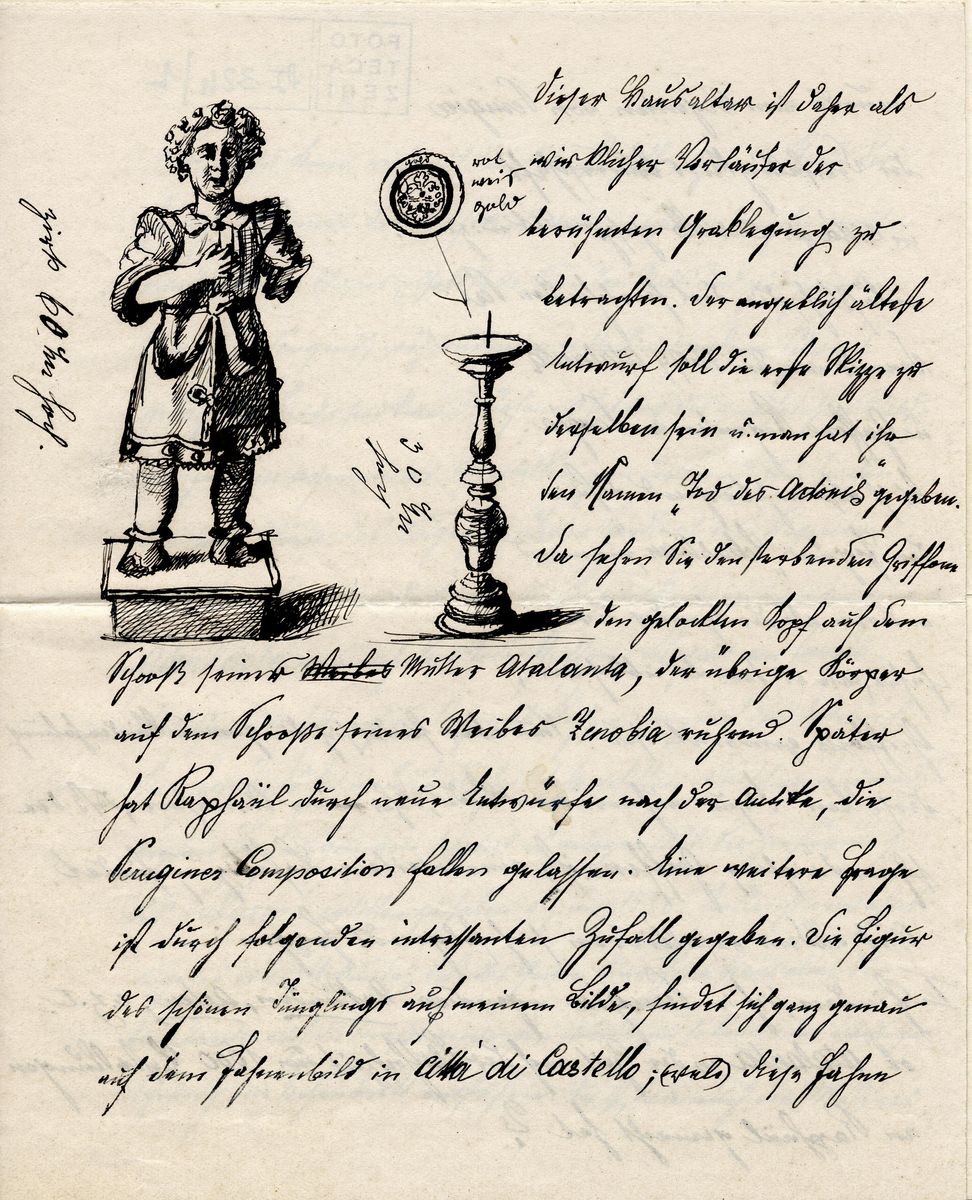 Dieser Hausaltar ist daher als
wirklicher Vorläufer der
berühmten Grablegung zu
betrachten. Der angeblich älteste
Entwurf soll die erste Skizze zu
derselben sein u. man hat ihr
den Namen „Tod des Adonis" gegeben.
Da sehen Sie den sterbenden Griffone
den gelockten Kopf auf dem
Schooß seiner Weibes Mutter Atalanta, der übrige Körper
auf dem Schooße seines Weibes Zenobia ruhend. Später
hat Raphaël durch neue Entwürfe nach der Antike, die
Perugines Composition fallen gelassen. Eine weitere Frage
ist durch folgenden intressanten Zufall gegeben. Die Figur
des schönen Jünglings auf meinem Bilde, findet sich ganz genau
auf dem Fahnenbild in Città di Castello; diese Fahne
gold
rot
weis
gold
30 c/m
hoch
zirka 60 c/m hoch.
FOTO
TECA
ZERI